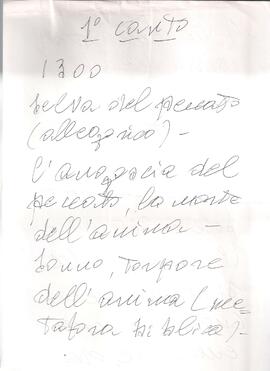 1° canto
1300
Selva del peccato
(allegorico) -
L'angoscia del
peccato, la morte
dell'anima -
Sonno, torpore
dell'anima (me-
tafora biblica) -